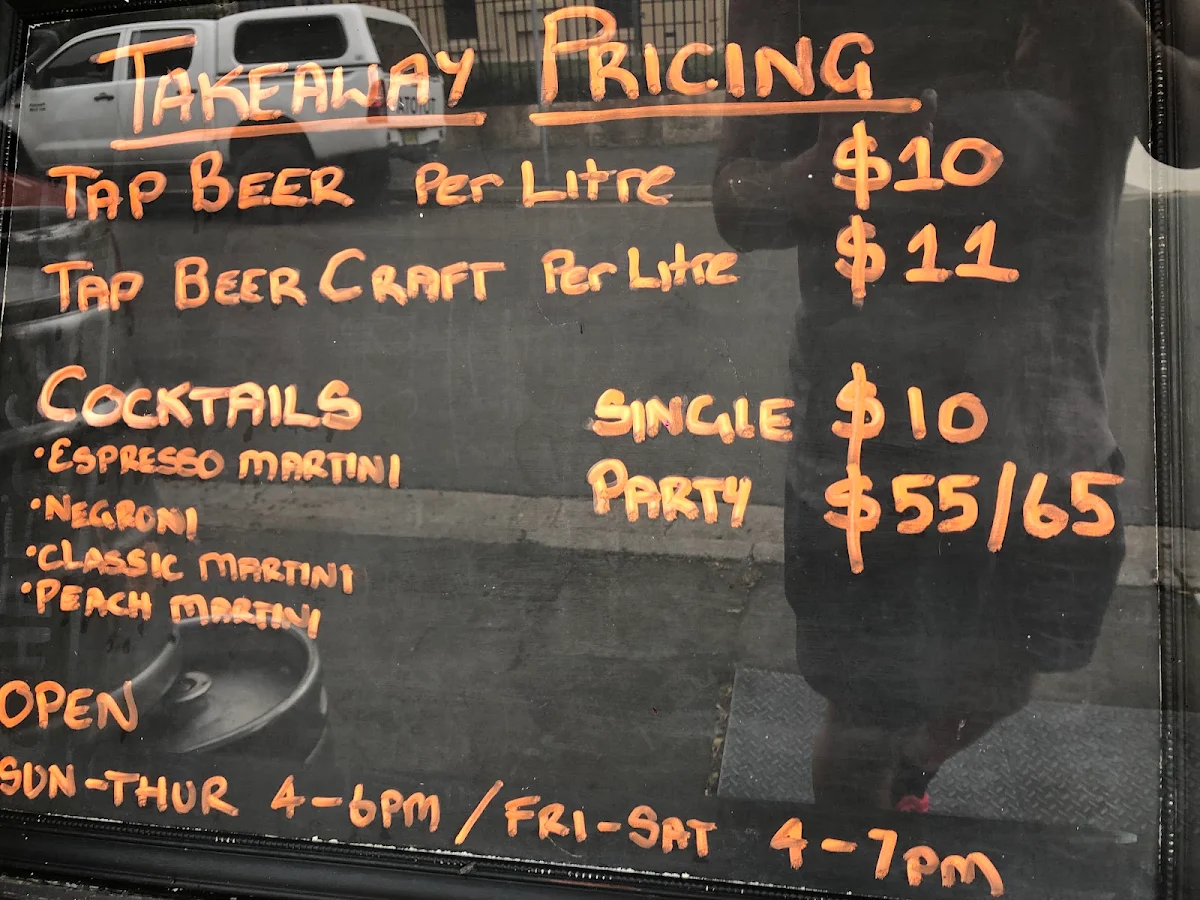 TAKEAWAY PRICING
TAP BEER Per Litre $10
TAP BEER CRAFT Per Litre $11
COCKTAILS SINGLE $10
•ESPRESSO MARTINI PARTY $55/65
•NEGRONI
•CLASSIC MARTINI
•PEACH MARTINI
OPEN
SUN-THUR 4-6PM / FRI-SAT 4-7pm